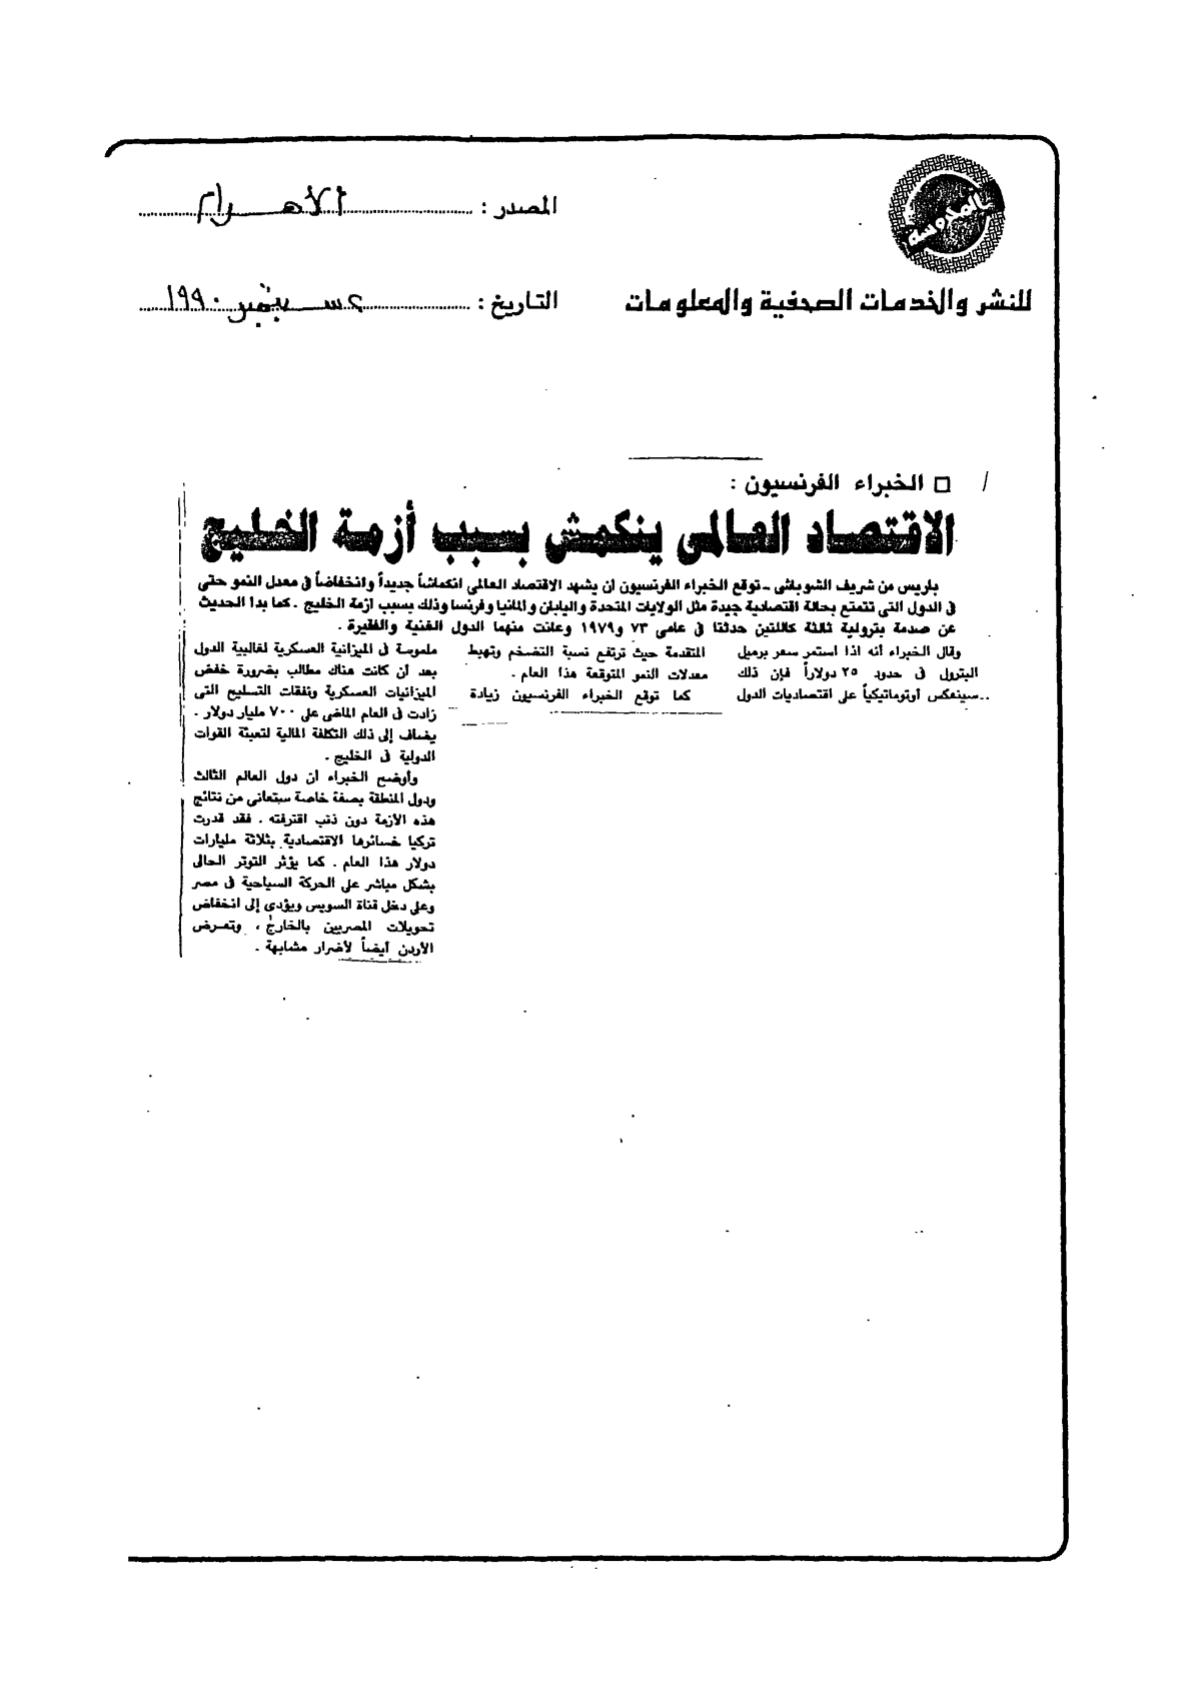 المصدر : الأهرام
التاريخ : ٢ سبتمبر ١٩٩٠
للنشر والخدمات الصحفية والمعلومات
□ الخبراء الفرنسيون :
الاقتصاد العالمى ينكمش بسبب أزمة الخليج
باريس من شريف الشوباشى ـ توقع الخبراء الفرنسيون ان يشهد الاقتصاد العالمى انكماشاً جديداً وانخفاضاً فى معدل النمو حتى
فى الدول التى تتمتع بحالة اقتصادية جيدة مثل الولايات المتحدة واليابان والمانيا وفرنسا وذلك بسبب ازمة الخليج . كما بدا الحديث
عن صدمة بترولية ثالثة كاللتين حدثتا فى عامى ٧٣ و١٩٧٩ وعانت منهما الدول الغنية والفقيرة .
وقال الخبراء أنه اذا استمر سعر برميل
البترول فى حدود ٢٥ دولاراً فإن ذلك
سينعكس أوتوماتيكياً على اقتصاديات الدول
المتقدمة حيث ترتفع نسبة التضخم وتهبط
معدلات النمو المتوقعة هذا العام .
كما توقع الخبراء الفرنسيون زيادة
ملموسة فى الميزانية العسكرية لغالبية الدول
بعد أن كانت هناك مطالب بضرورة خفض
الميزانيات العسكرية ونفقات التسليح التى
زادت فى العام الماضى على ٧٠٠ مليار دولار .
يضاف إلى ذلك التكلفة المالية لتعبئة القوات
الدولية فى الخليج .
وأوضح الخبراء أن دول العالم الثالث
ودول المنطقة بصفة خاصة ستعانى من نتائج
هذه الأزمة دون ذنب اقترفته . فقد قدرت
تركيا خسائرها الاقتصادية بثلاثة مليارات
دولار هذا العام . كما يؤثر التوتر الحالى
بشكل مباشر على الحركة السياحية فى مصر
وعلى دخل قناة السويس ويؤدى إلى انخفاض
تحويلات المصريين بالخارج ، وتعرض
الأردن أيضاً لأضرار مشابهة .